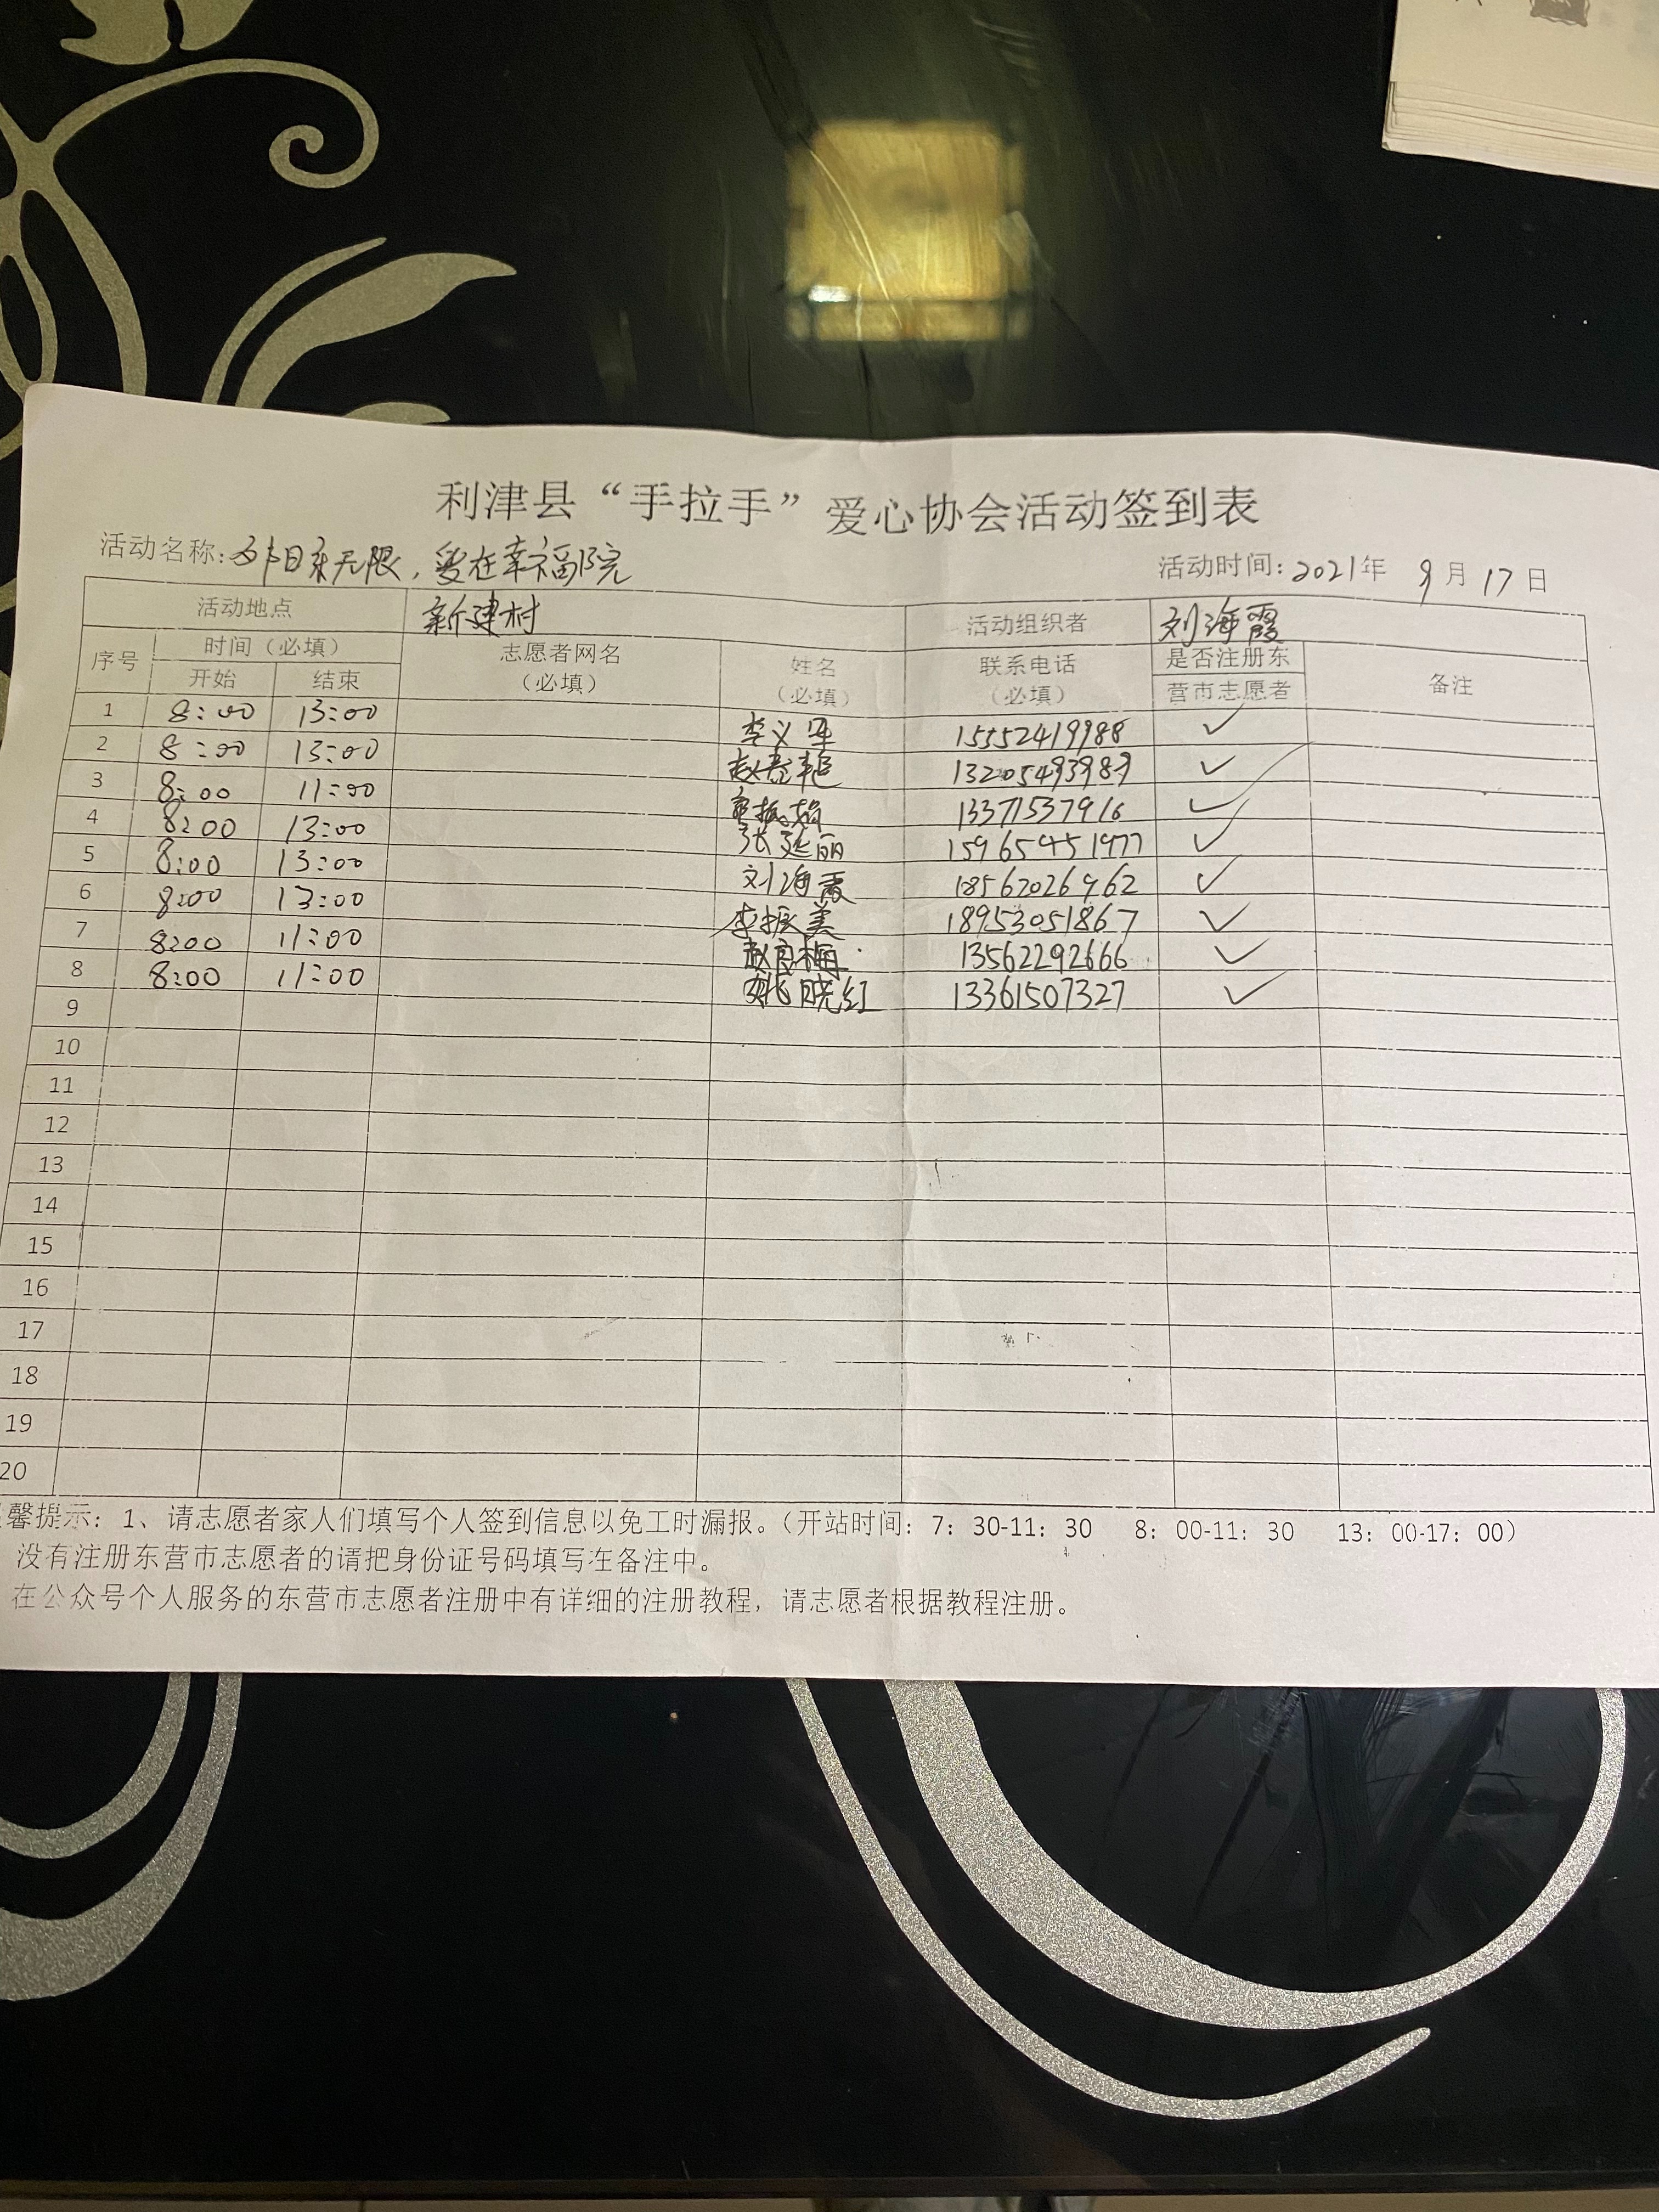 利津县“手拉手”爱心协会活动签到表
活动名称:夕阳美无限,爱在幸福院 活动时间:2021年 9月17日
活动地点 新建村 活动组织者 刘海霞
序号 时间(必填) 志愿者网名(必填) 姓名(必填) 联系电话(必填) 是否注册东营市志愿者 备注
开始 结束
1 8:00 13:00 李义军 15552419988 ✓
2 8:00 13:00 13205493989 ✓
3 8:00 11:00 13371537916 ✓
4 8:00 13:00 张延丽 15965451977 ✓
5 8:00 13:00 刘海霞 ✓
6 8:00 13:00 李振美 18953051867 ✓
7 8:00 11:00 赵良梅 13562292666 ✓
8 8:00 11:00 姚晓红 13361507327 ✓
9
10
11
12
13
14
15
16
17
18
19
20
馨提示:1、请志愿者家人们填写个人签到信息以免工时漏报。(开站时间:7:30-11:30 8:00-11:30 13:00-17:00)
没有注册东营市志愿者的请把身份证号码填写在备注中。
在公众号个人服务的东营市志愿者注册中有详细的注册教程,请志愿者根据教程注册。